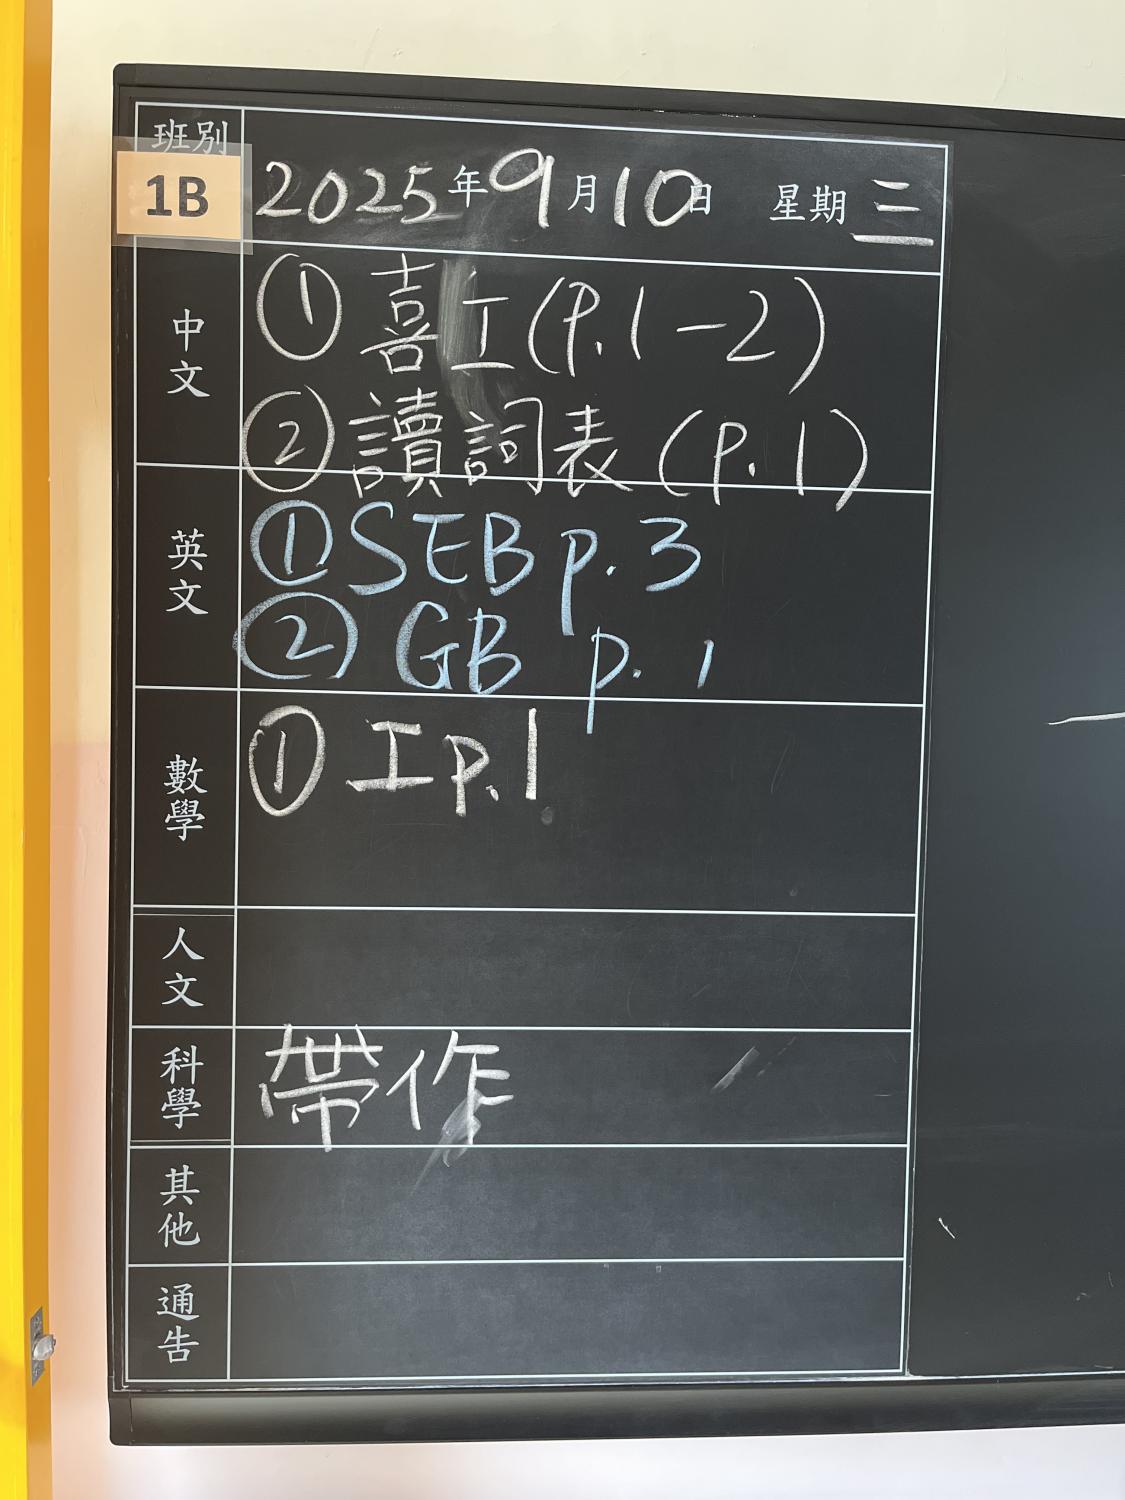 班別
1B
2025年9月10日 星期三
中文
① 喜工(P.1-2)
② 讀詞表(P.1)
英文
① SEB p.3
② GB p.1
數學
① 工p.1
人文
科學
帶作
其他
通告